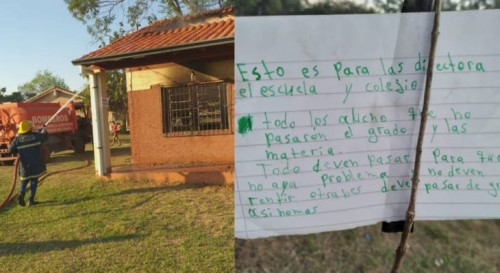 Esto es para las directora
el escuela y colegio
todo los alucho que no
pasaron el grado y las
materia.
Todo deven pasar Para que
no aya problema no deven
rentir otrabes deve pasar de
asi nomas